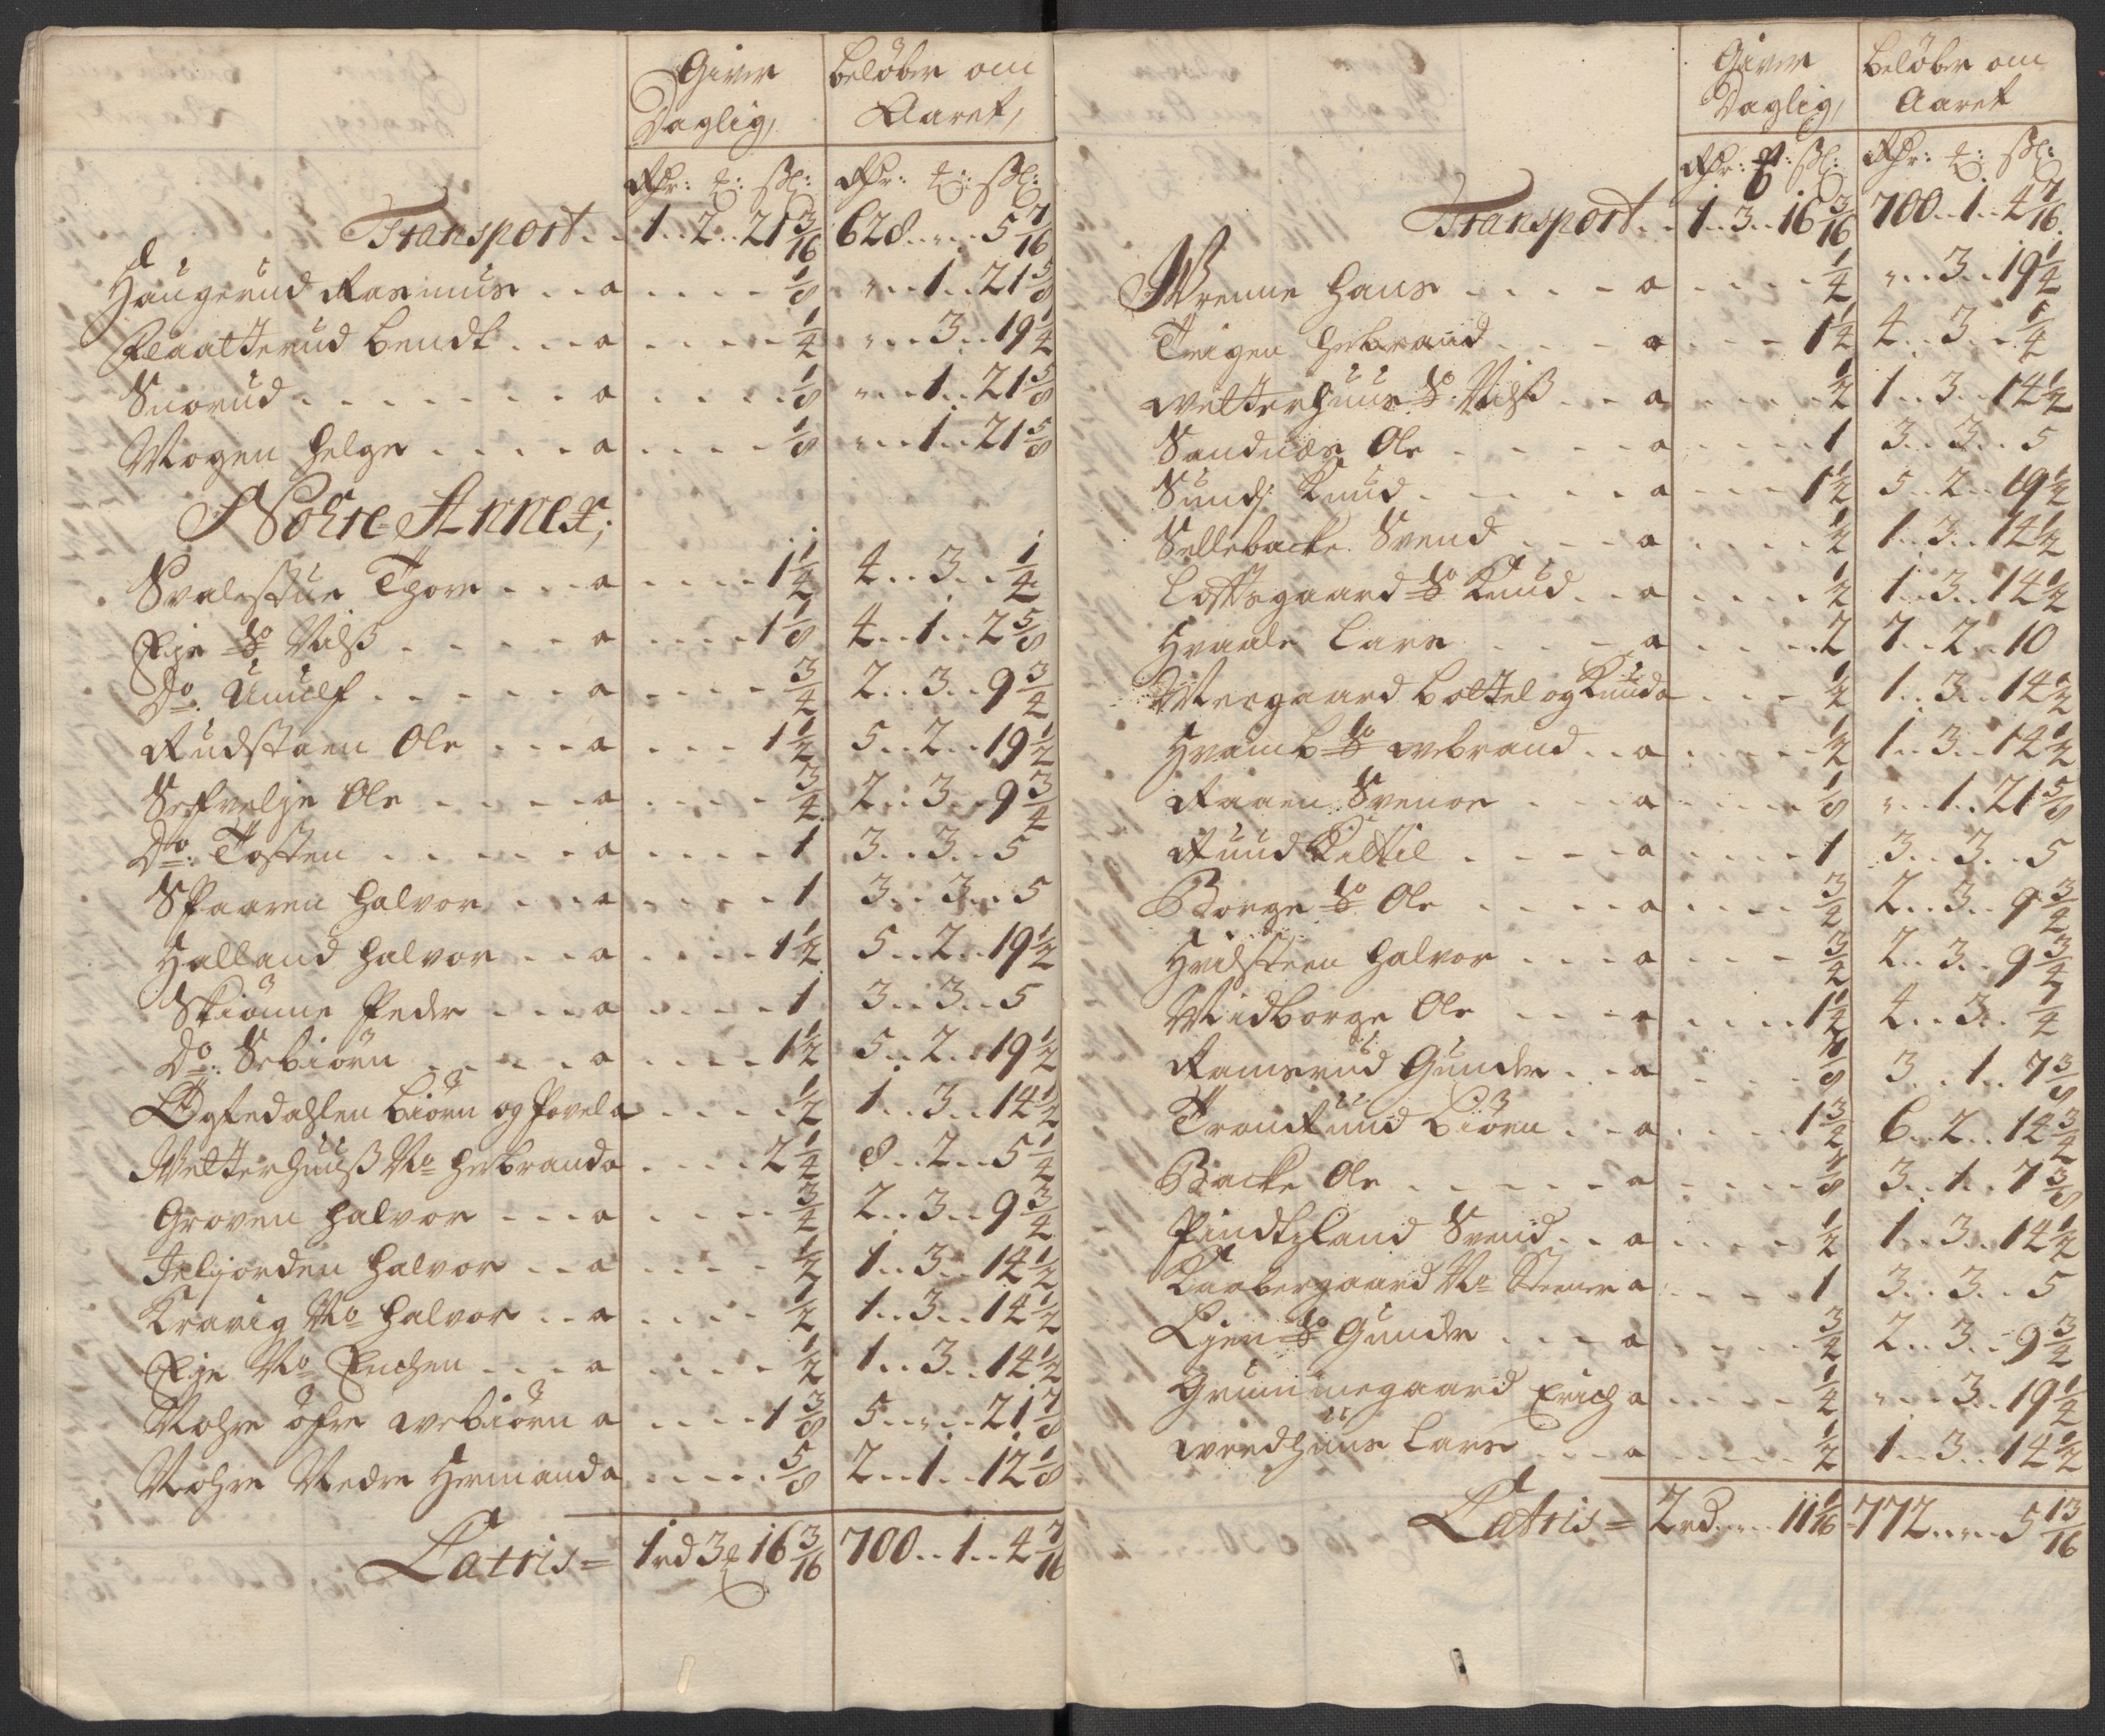 Giver
Daglig,
Beløber om
Aaret,
Rdr: ℔: sk: Rdr: ℔: sk:
Transport . . 1 . . 2 . . 21 3/16 628 . . " . . 5 7/16
Haugerud Rasmus . . a . . . . 1/8 " . . 1 . . 21 5/8
Flaatterud Bendt . . . a . . . . 1/4 " . . 3 . . 19 1/4
Snorud . . . . . . . a . . . . 1/8 " . . 1 . . 21 5/8
Mogen Helge . . . . a . . . . 1/8 " . . 1 . . 21 5/8
Nohre Annex;
Svalestue Thore . . . a . . . . 1 1/4 4 . . 3 . . 1/4
Eje Nilß . . . . . a . . . . 1 1/8 4 . . 1 . . 2 5/8
Do: Unulf . . . . . . a . . . . 3/4 2 . . 3 . . 9 3/4
Rudstaen Ole . . . a . . . 1 1/2 5 . . 2 . . 19 1/2
Sefvelje Ole . . . . a . . . . 3/4 2 . . 3 . . 9 3/4
Do: Tosten . . . . . a . . . . 1 3 . . 3 . . 5
Spaaren Halvor . . . a . . . . 1 3 . . 3 . . 5
Halland Halvor . . . a . . . . 1 1/2 5 . . 2 . . 19 1/2
Skiönne Peder . . . a . . . . 1 3 . . 3 . . 5
Do: Sebiörn . . . . a . . . . 1 1/2 5 . . 2 . . 19 1/2
Ögtedahlen Biörn og Povel a . . . . 1/2 1 . . 3 . . 14 1/2
Wetterhuuß No Hebrand a . . . . 2 1/4 8 . . 2 . . 5 1/4
Groven Halvor . . . a . . . . 3/4 2 . . 3 . . 9 3/4
Jeljorden Halvor . . a . . . . 1/2 1 . . 3 . . 14 1/2
Kravig No Halvor . . a . . . . 1/2 1 . . 3 . . 14 1/2
Eje No Enchen . . . . a . . . . 1/2 1 . . 3 . . 14 1/2
Nohre öfre webiörn a . . . . 1 3/8 5 . . " . . 21 7/8
Nohre Nedre Hermand a . . . . 5/8 2 . . 1 . . 12 1/8
Latris = 1 rd 3 ℔ 16 3/16 700 . . 1 . . 4 7/16
Giver
Daglig,
Beløber om
Aaret
Rdr: ℔: sk: Rdr: ℔: sk:
Transport . . 1 . . 3 . . 16 3/16 700 . . 1 . . 4 7/16
Wrenne Hans . . . . a . . . . 1/4 " . . 3 . . 19 1/4
Teigen Hebrand . . . . a . . . 1 1/4 4 . . 3 . . 1/4
wetterhuus Nilß . . a . . . . 1/2 1 . . 3 . . 14 1/2
Sandnæs Ole . . . . . a . . . . 1 3 . . 3 . . 5
Sundj Knud . . . . . a . . . 1 1/2 5 . . 2 . . 19 1/2
Sellebacke Svend . . . a . . . . 1/2 1 . . 3 . . 14 1/2
Loftsgaard Knud . . a . . . . 1/2 1 . . 3 . . 14 1/2
Hvaale Lars . . . . a . . . . 2 7 . . 2 . . 10
Mergaard Bottel og Knud a . . . 1/2 1 . . 3 . . 14 1/2
Hvamb webrand . . a . . . . 1/2 1 . . 3 . . 14 1/2
Raaen Svenor . . . a . . . . 1/8 " . . 1 . . 21 5/8
Ruud Kittil . . . . a . . . . 1 3 . . 3 . . 5
Borge Ole . . . . a . . . . 3/4 2 . . 3 . . 9 3/4
Hvidsteen Halvor . . . a . . . 3/4 2 . . 3 . . 9 3/4
Midborge Ole . . . . a . . . . 1 1/4 4 . . 3 . . 1/4
Ramsrud Gunder . . . a . . . . 7/8 3 . . 1 . . 7 3/8
Tronrund Biörn . . . a . . . . 1 3/4 6 . . 2 . . 12 3/4
Backe Ole . . . . . . a . . . . 7/8 3 . . 1 . . 7 3/8
Pindtzland Svend . . a . . . . 1/2 1 . . 3 . . 14 1/2
Kaabergaard No Steener a . . . . 1 3 . . 3 . . 5
Lien Gunder . . . . a . . . . 3/4 2 . . 3 . . 9 3/4
Grummegaard Erich a . . . . 1/4 " . . 3 . . 19 1/4
weedhuus Lars . . . a . . . . 1/2 1 . . 3 . . 14 1/2
Latris = 2 rd . . " . . 11 1/16 772 . . " . . 5 13/16